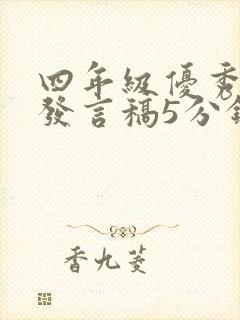 四年級優秀
發言稿5分鐘
香九菱